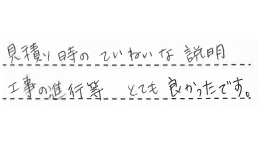 見積り時の ていねいな 説明
工事の進行等 とても 良かったです。